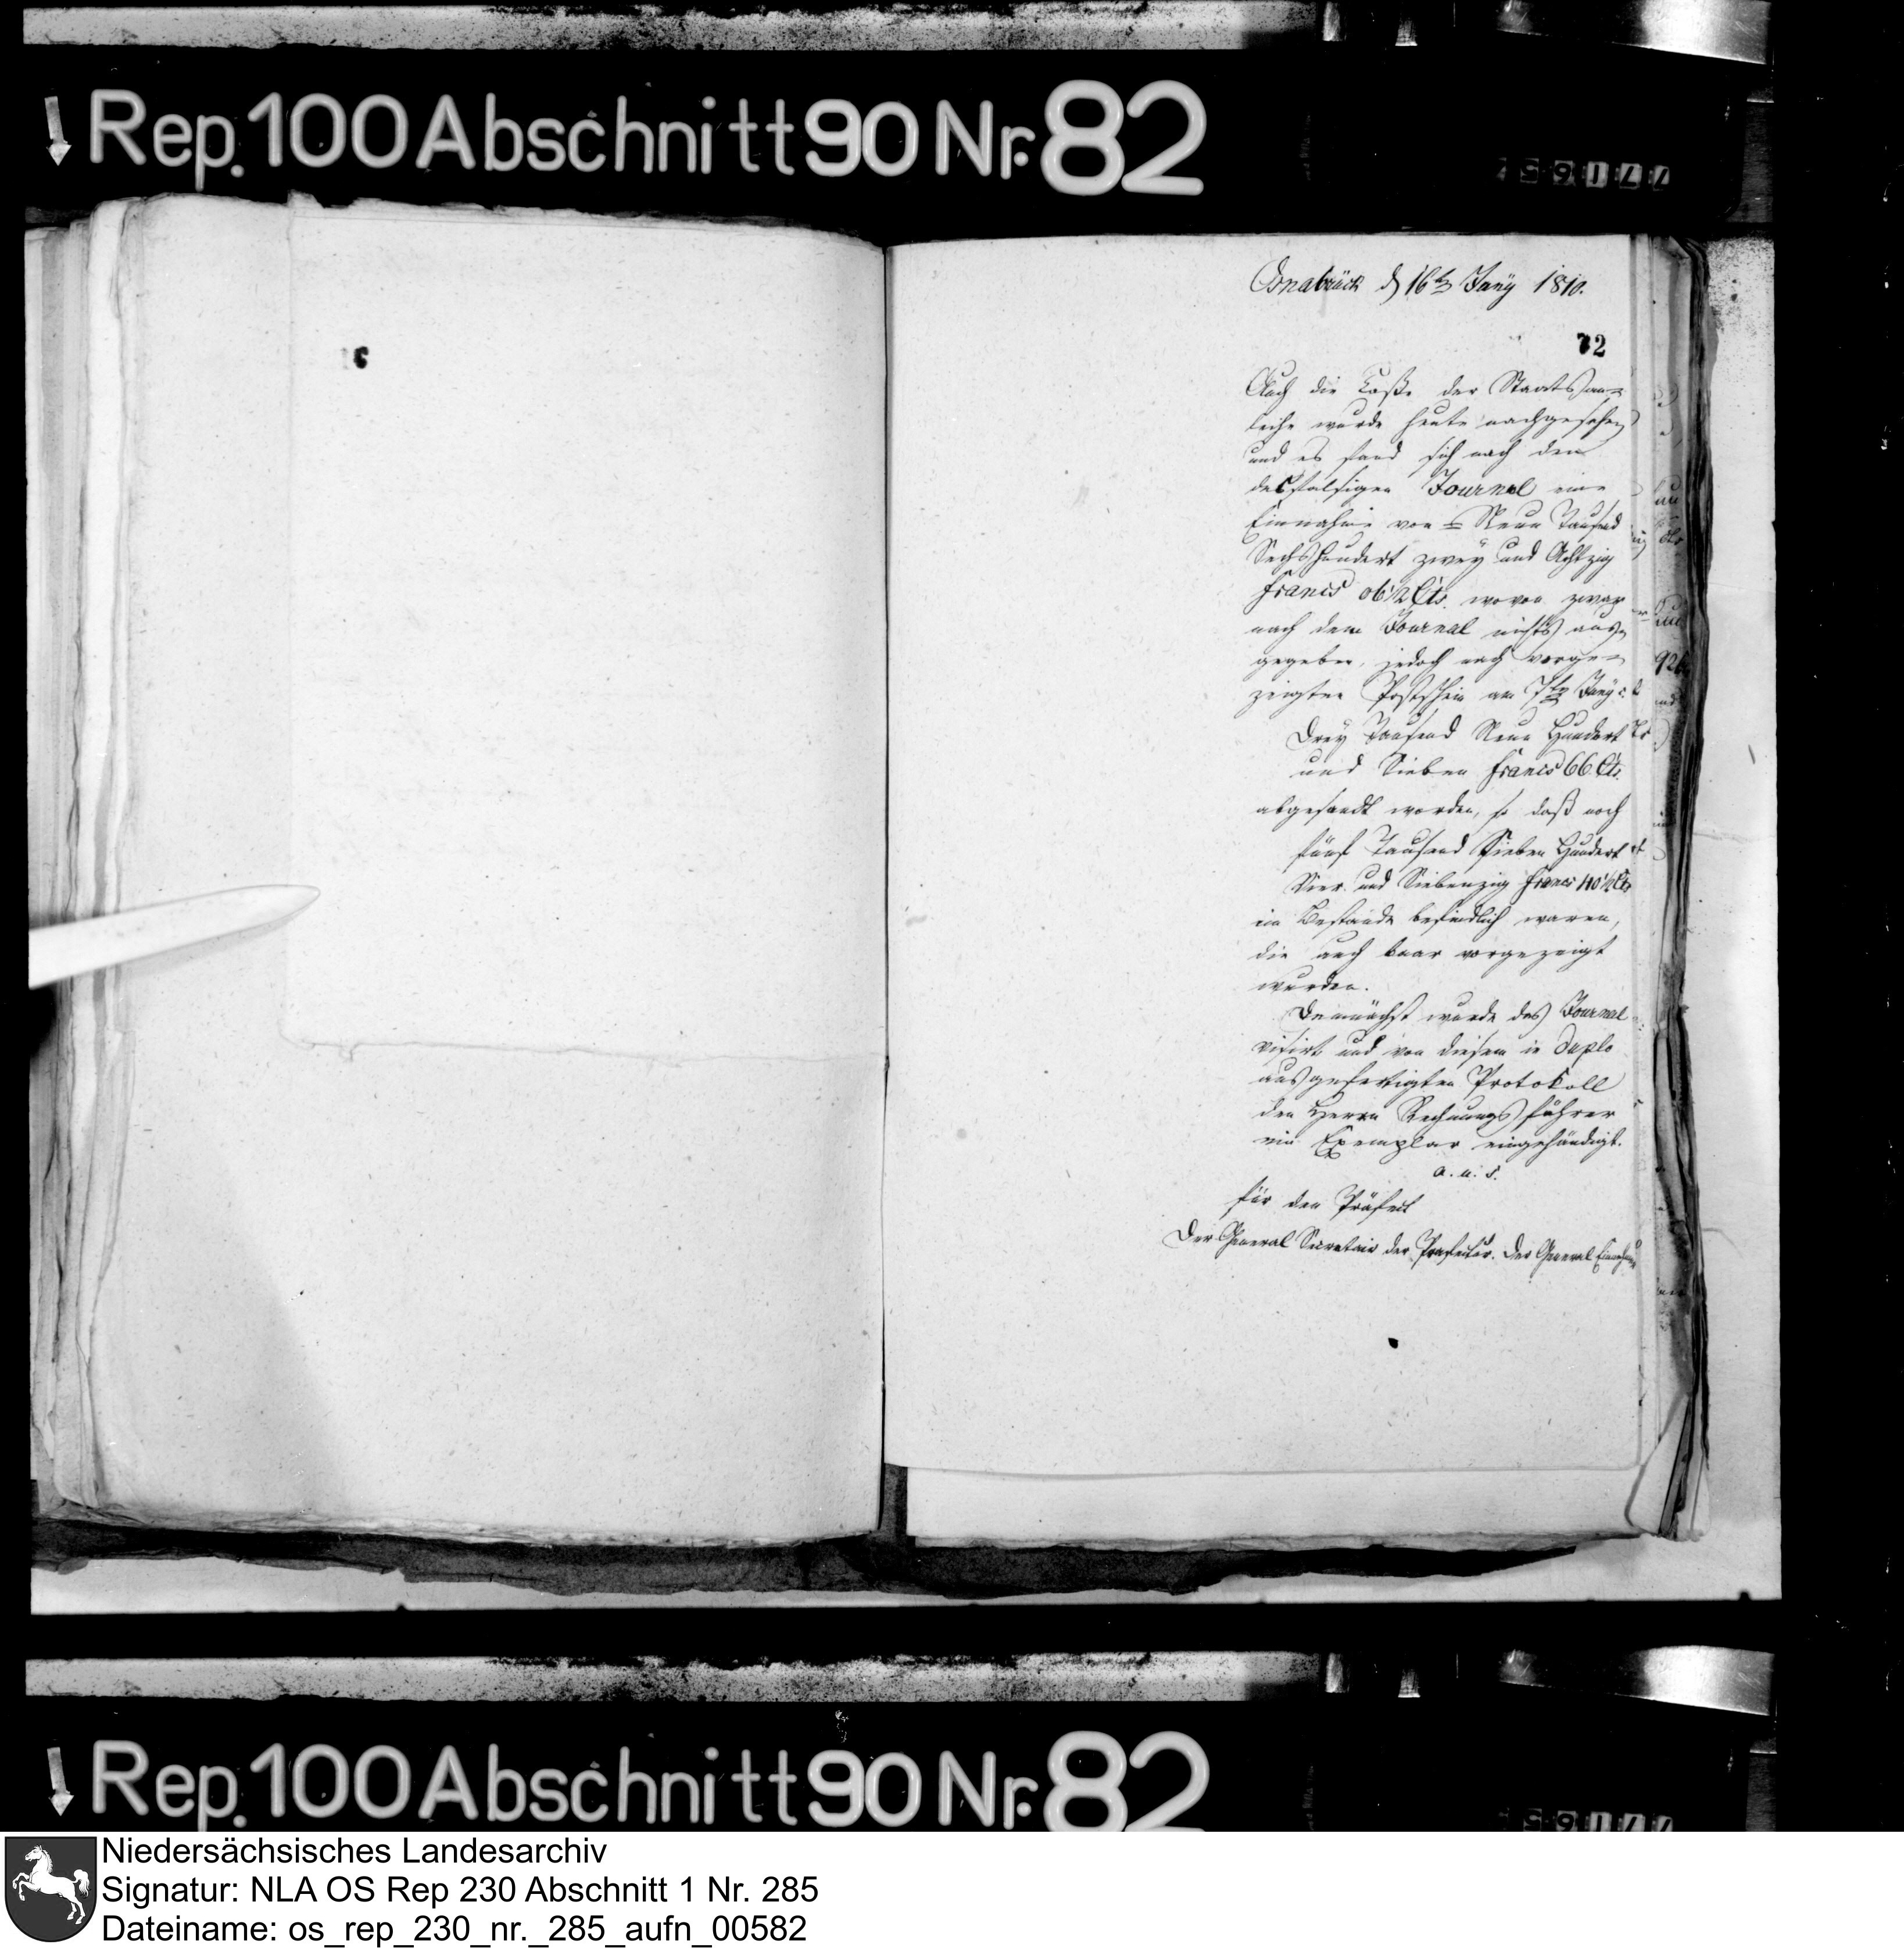 Rep. 100 Abschnitt 90 Nr. 82
Osnabrück d 16ten Juny 1810.
72
Auch die Casse der Staats an-
leihe wurde heute nachgesehen
und es fand sich nach dem
desfalsigen Journal eine
Einnahme von = Neun Tausend
Sechshundert zwey und Achtzig
francs 06½ Cts. wovon zwar
nach dem Journal nichts aus-
gegeben, jedoch nach vorge-
zeigten Postschein am 7ten Juny c.
Drey Tausend Neun Hundert
und Sieben francs 66 Cts.
abgesandt worden, so daß noch
fünf Tausend Sieben Hundert
Vier und Siebenzig francs 40½ Cts
in Bestande befindlich waren,
die auch baar vorgezeigt
wurden.
Demnächst wurde das Journal
visirt und von diesem in duplo
ausgefertigten Protokoll
den Herrn Rechnungsführer
ein Exemplar eingehändigt.
a. u. s.
für den Präfect
Der General Secretair der Präfectur. Der General Einnehmer
Rep. 100 Abschnitt 90 Nr. 82
Niedersächsisches Landesarchiv
Signatur: NLA OS Rep 230 Abschnitt 1 Nr. 285
Dateiname: os_rep_230_nr._285_aufn_00582